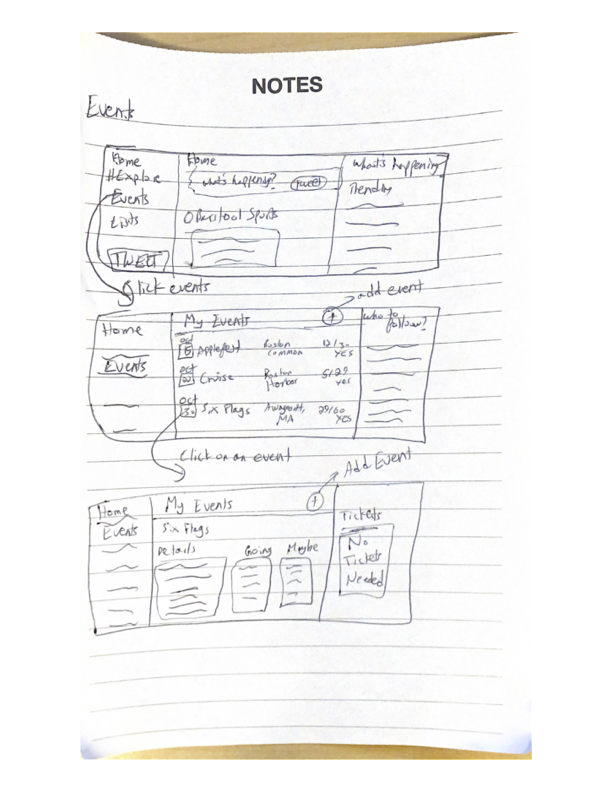 NOTES
Events
Home
#Explore
Events
Lists
TWEET
Home
what's happening? tweet
Barstool Sports
what's happening
Trending
Click events
add event
Home
Events
My Events +
Oct
Applefest Boston Common 12/30 YES
Oct
Cruise Boston Harbor 5/29 yes
Oct
Six Flags MA 29/60 YES
who to follow?
Click on an event
Add Event
Home
Events
My Events +
Six Flags
Details Going Maybe
Tickets
No
Tickets
Needed